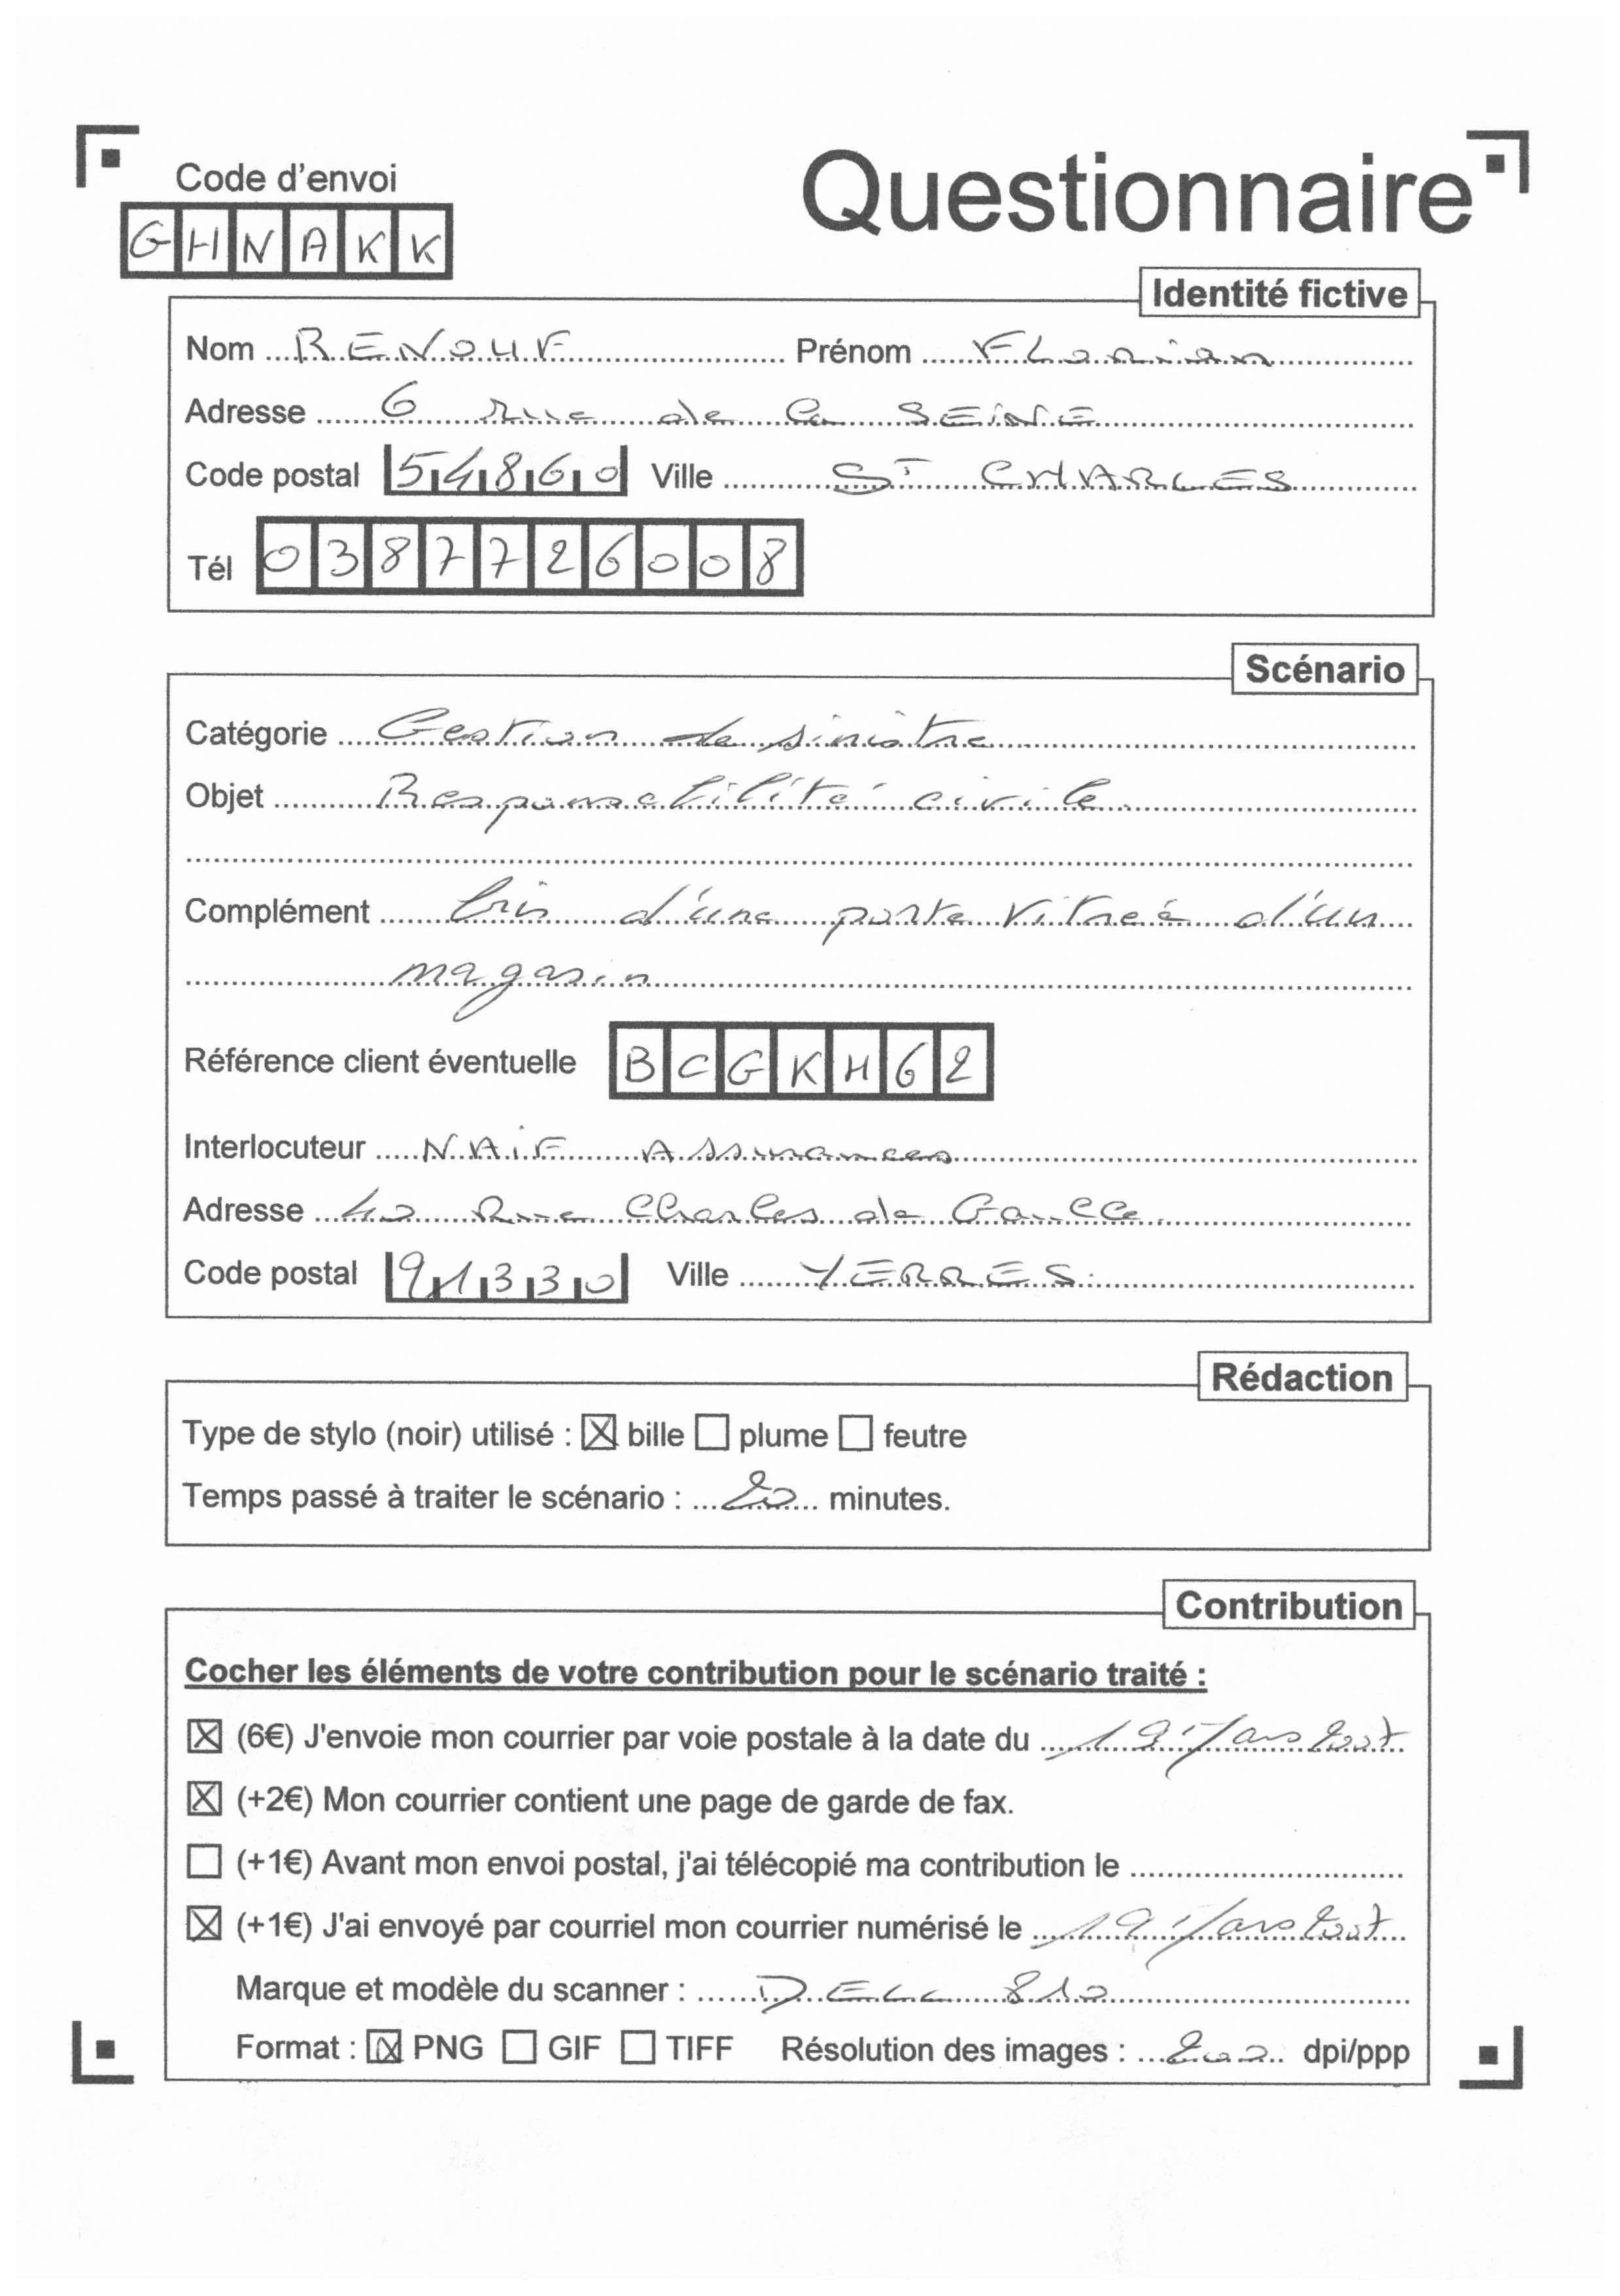 Code d'envoi
Questionnaire
GHNAKK
Identité fictive
Nom RENOUF Prénom Florian
Adresse 6 rue de la SEINE
Code postal 54860 Ville ST CHARLES
Tél 0387726008
Scénario
Catégorie Gestion de sinistre
Objet Responsabilité civile
Complément bris d'une porte vitreé d'un
magasin
Référence client éventuelle BCGKH62
Interlocuteur NAiF Assurances
Adresse 40 Rue Charles de Gaulle
Code postal 91330 Ville YERRES
Rédaction
Type de stylo (noir) utilisé : ☒ bille ☐ plume ☐ feutre
Temps passé à traiter le scénario : 20 minutes.
Contribution
Cocher les éléments de votre contribution pour le scénario traité :
☒ (6€) J'envoie mon courrier par voie postale à la date du 19 2007
☒ (+2€) Mon courrier contient une page de garde de fax.
☐ (+1€) Avant mon envoi postal, j'ai télécopié ma contribution le
☒ (+1€) J'ai envoyé par courriel mon courrier numérisé le 19 2007
Marque et modèle du scanner : DELL 810
Format : ☒ PNG ☐ GIF ☐ TIFF Résolution des images : 200 dpi/ppp